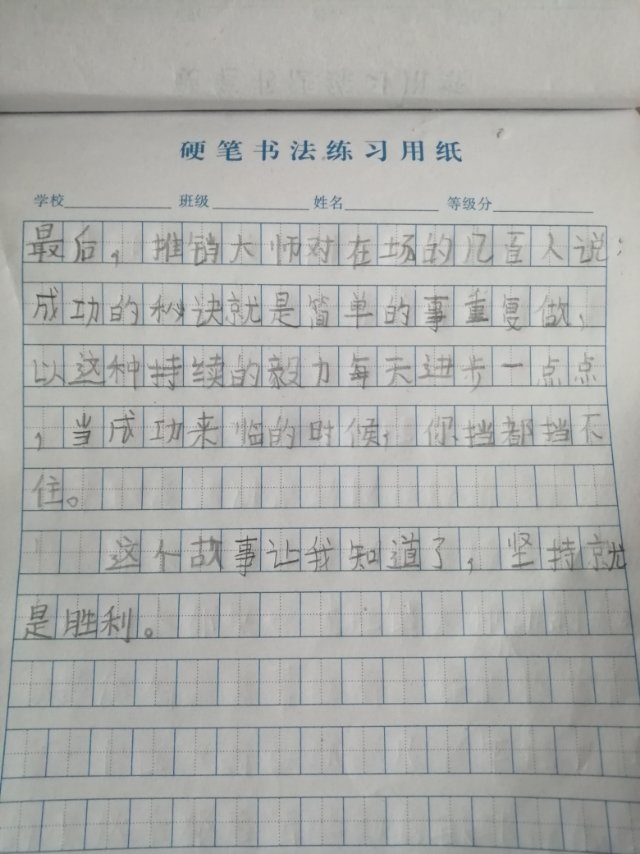 硬笔书法练习用纸
学校 班级 姓名 等级分
最后，推销大师对在场的几百人说：
成功的秘诀就是简单的事重复做，
以这种持续的毅力每天进步一点点
，当成功来临的时候，你挡都挡不
住。
这个故事让我知道了，坚持就
是胜利。